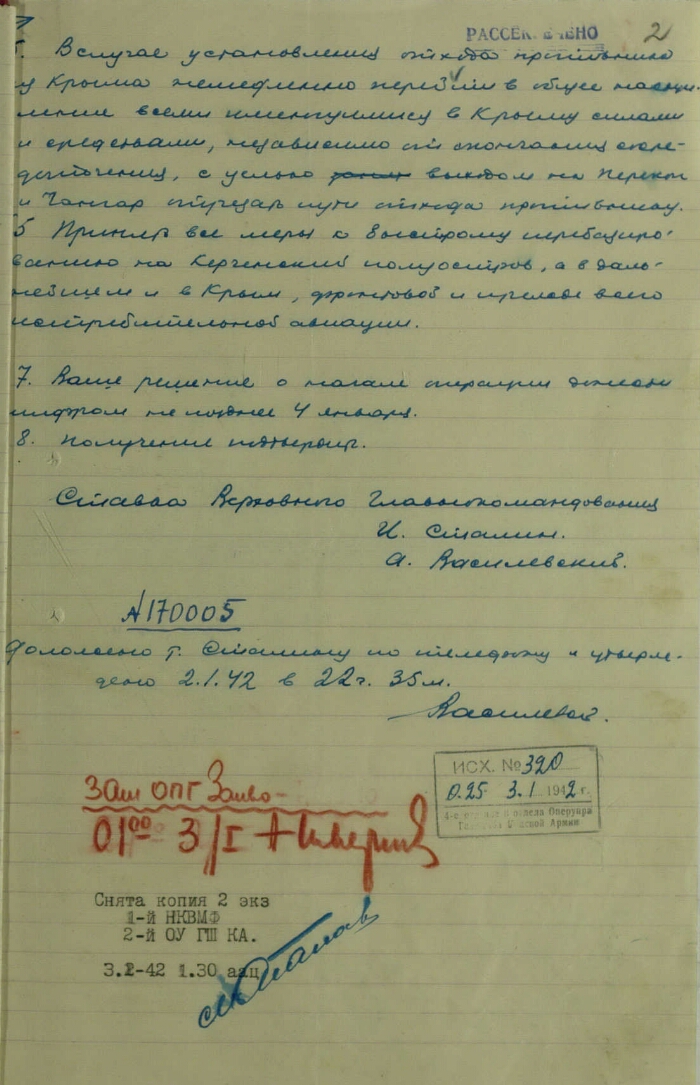 РАССЕКРЕЧЕНО
2
В случае установления отхода противника
из Крыма немедленно перейти в общее наступ-
ление всеми имеющимися в Крыму силами
и средствами, независимо от окончания сосре-
доточения, с целью выходом на Перекоп
и Чонгар отрезать пути отхода противнику.
Принять все меры к быстрому перебазиро-
ванию на Керченский полуостров, а в даль-
нейшем и в Крым, фронтовой и прежде всего
истребительной авиации.
7. Ваше решение о начале операции донести
шифром не позднее 4 января.
8. Получение подтвердить.
Ставка Верховного Главнокомандования
И. Сталин.
А. Василевский.
№170005
Доложено т. Сталину по телефону и утверж-
дено 2.1.42 в 22 г. 35 м.
Василевский.
ИСХ. № 320
0.25 3.1 1942 г.
отдела Оперупра
Красной Армии
Зам ОПГ
01⁰⁰ 3/I
Снята копия 2 экз
1-й НКВМФ
2-й ОУ ГШ КА.
3.1-42 1.30